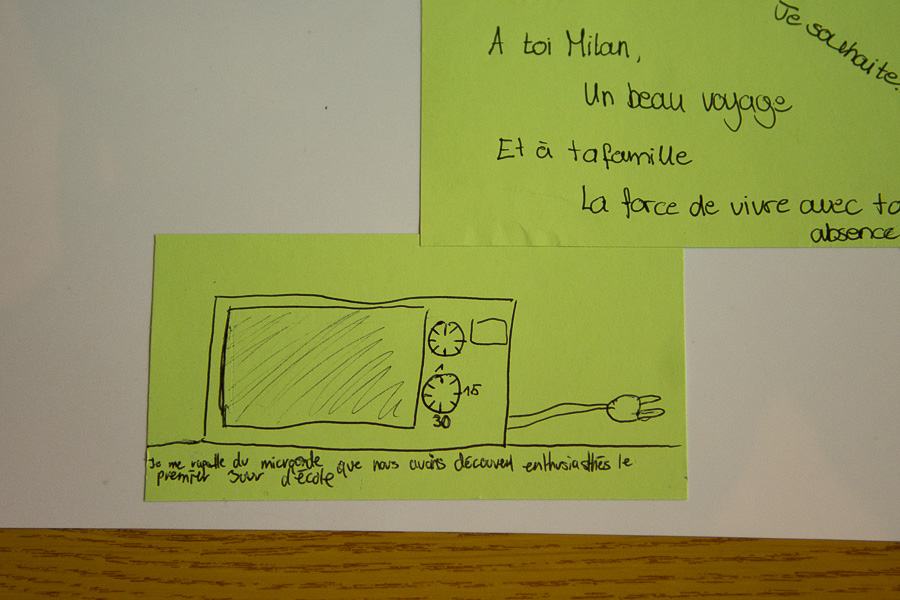 Je souhaite
A toi Milan,
Un beau voyage
Et à ta famille
La force de vivre avec ta
absence
1
15
30
Je me rapelle du microonde que nous avions découvert enthusiastiés le
premier jour d'école